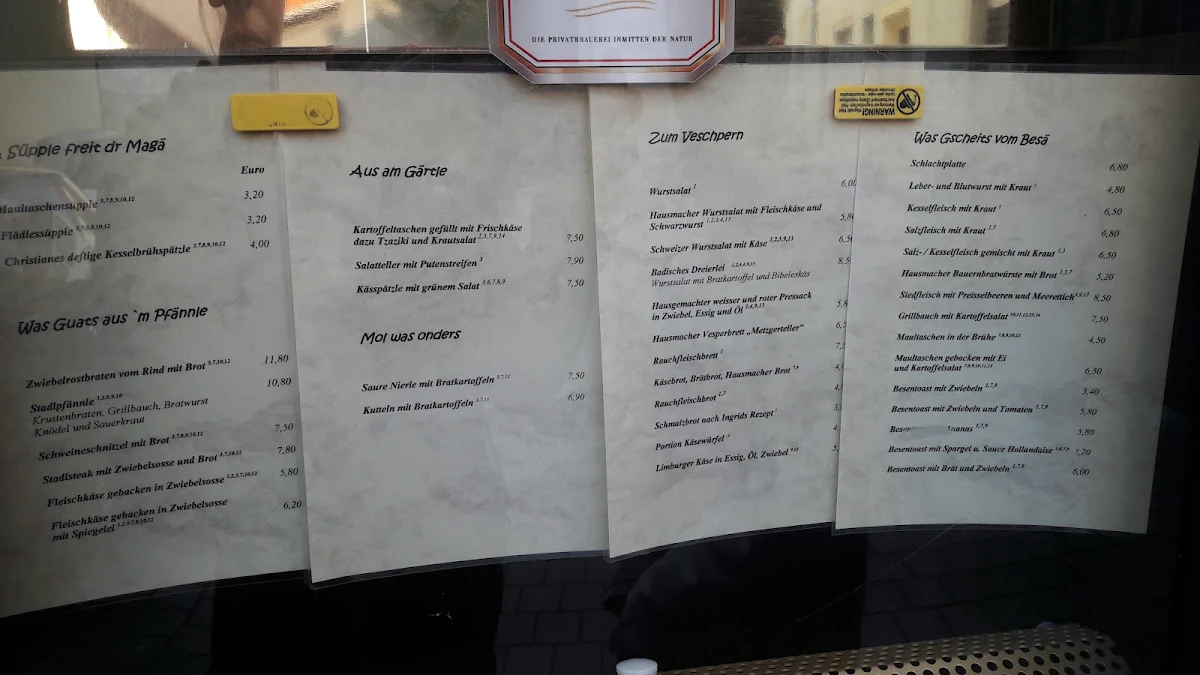 DIE PRIVATBRAUEREI INMITTEN DER NATUR
Süpple freit dr Magä
Euro
Maultaschensupple 3,7,8,9,10,12 3,20
Flädlessüpple 3,20
Christianes deftige Kesselbrühspätzle 3,7,8,9,10,12 4,00
Was Guats aus `m Pfännle
Zwiebelrostbraten vom Rind mit Brot 3,7,10,12 11,80
Stadlpfännle 10,80
Krustenbraten, Grillbauch, Bratwurst
Knödel und Sauerkraut
Schweineschnitzel mit Brot 3,7,8,9,10,12 7,50
Stadlsteak mit Zwiebelsosse und Brot 3,7,10,12 7,80
Fleischkäse gebacken in Zwiebelsosse 1,2,3,7,10,12 5,80
Fleischkäse gebacken in Zwiebelsosse 6,20
mit Spiegelei 1,2,3,7,8,10,12
Aus am Gärtle
Kartoffeltaschen gefüllt mit Frischkäse
dazu Tzaziki und Krautsalat 2,3,7,9,14 7,50
Salatteller mit Putenstreifen 3 7,90
Kässpätzle mit grünem Salat 3,6,7,8,9 7,50
Mol was onders
Saure Nierle mit Bratkartoffeln 7,50
Kutteln mit Bratkartoffeln 6,90
Zum Veschpern
Wurstsalat 1 6,00
Hausmacher Wurstsalat mit Fleischkäse und
Schwarzwurst 1,2,3,4,13 5,8
Schweizer Wurstsalat mit Käse 1,2,3,9,13 6,5
Badisches Dreierlei 8,5
Wurstsalat mit Bratkartoffel und Bibeleskäs
Hausgemachter weisser und roter Pressack
in Zwiebel, Essig und Öl 3,4,9,13 5,8
Hausmacher Vesperbrett „Metzgerteller" 6,
Rauchfleischbrett 1 7,
Käsebrot, Brätbrot, Hausmacher Brot 4,
Rauchfleischbrot 4,
Schmalzbrot nach Ingrids Rezept 3,
Portion Käsewürfel 4.
Limburger Käse in Essig, Öl, Zwiebel 5.
WARNING!
Was Gscheits vom Besä
Schlachtplatte 6,80
Leber- und Blutwurst mit Kraut 1 4,80
Kesselfleisch mit Kraut 6,50
Salzfleisch mit Kraut 1,3 6,80
Salz-/ Kesselfleisch gemischt mit Kraut 1,3 6,50
Hausmacher Bauernbratwürste mit Brot 1,3,7 5,20
Siedfleisch mit Preisselbeeren und Meerettich 8,50
Grillbauch mit Kartoffelsalat 7,50
Maultaschen in der Brühe 7,8,9,10,12 4,50
Maultaschen gebacken mit Ei
und Kartoffelsalat 6,50
Besentoast mit Zwiebeln 1,7,9 5,40
Besentoast mit Zwiebeln und Tomaten 1,7,9 5,80
1,7,9 5,80
Besentoast mit Spargel u. Sauce Hollandaise 7,20
Besentoast mit Brät und Zwiebeln 1,7,9 6,00